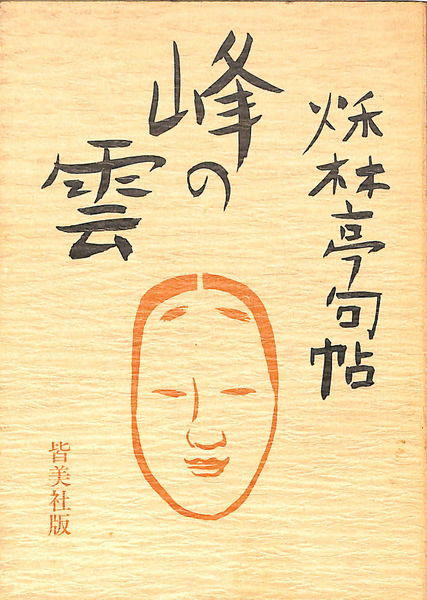 秌林亭句帖
峰の
雲
皆美社版